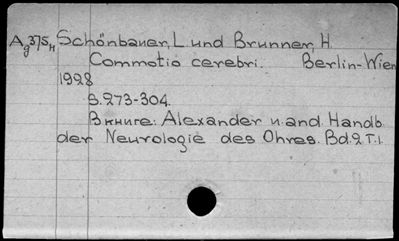 Ag375н Schönbauer, L. und Brunner, H.
Commotio cerebri. Berlin-Wien
1928
S.273-304.
Вкниге: Alexander u. and. Handb.
der Neurologie des Ohres. Bd.2 T.1.